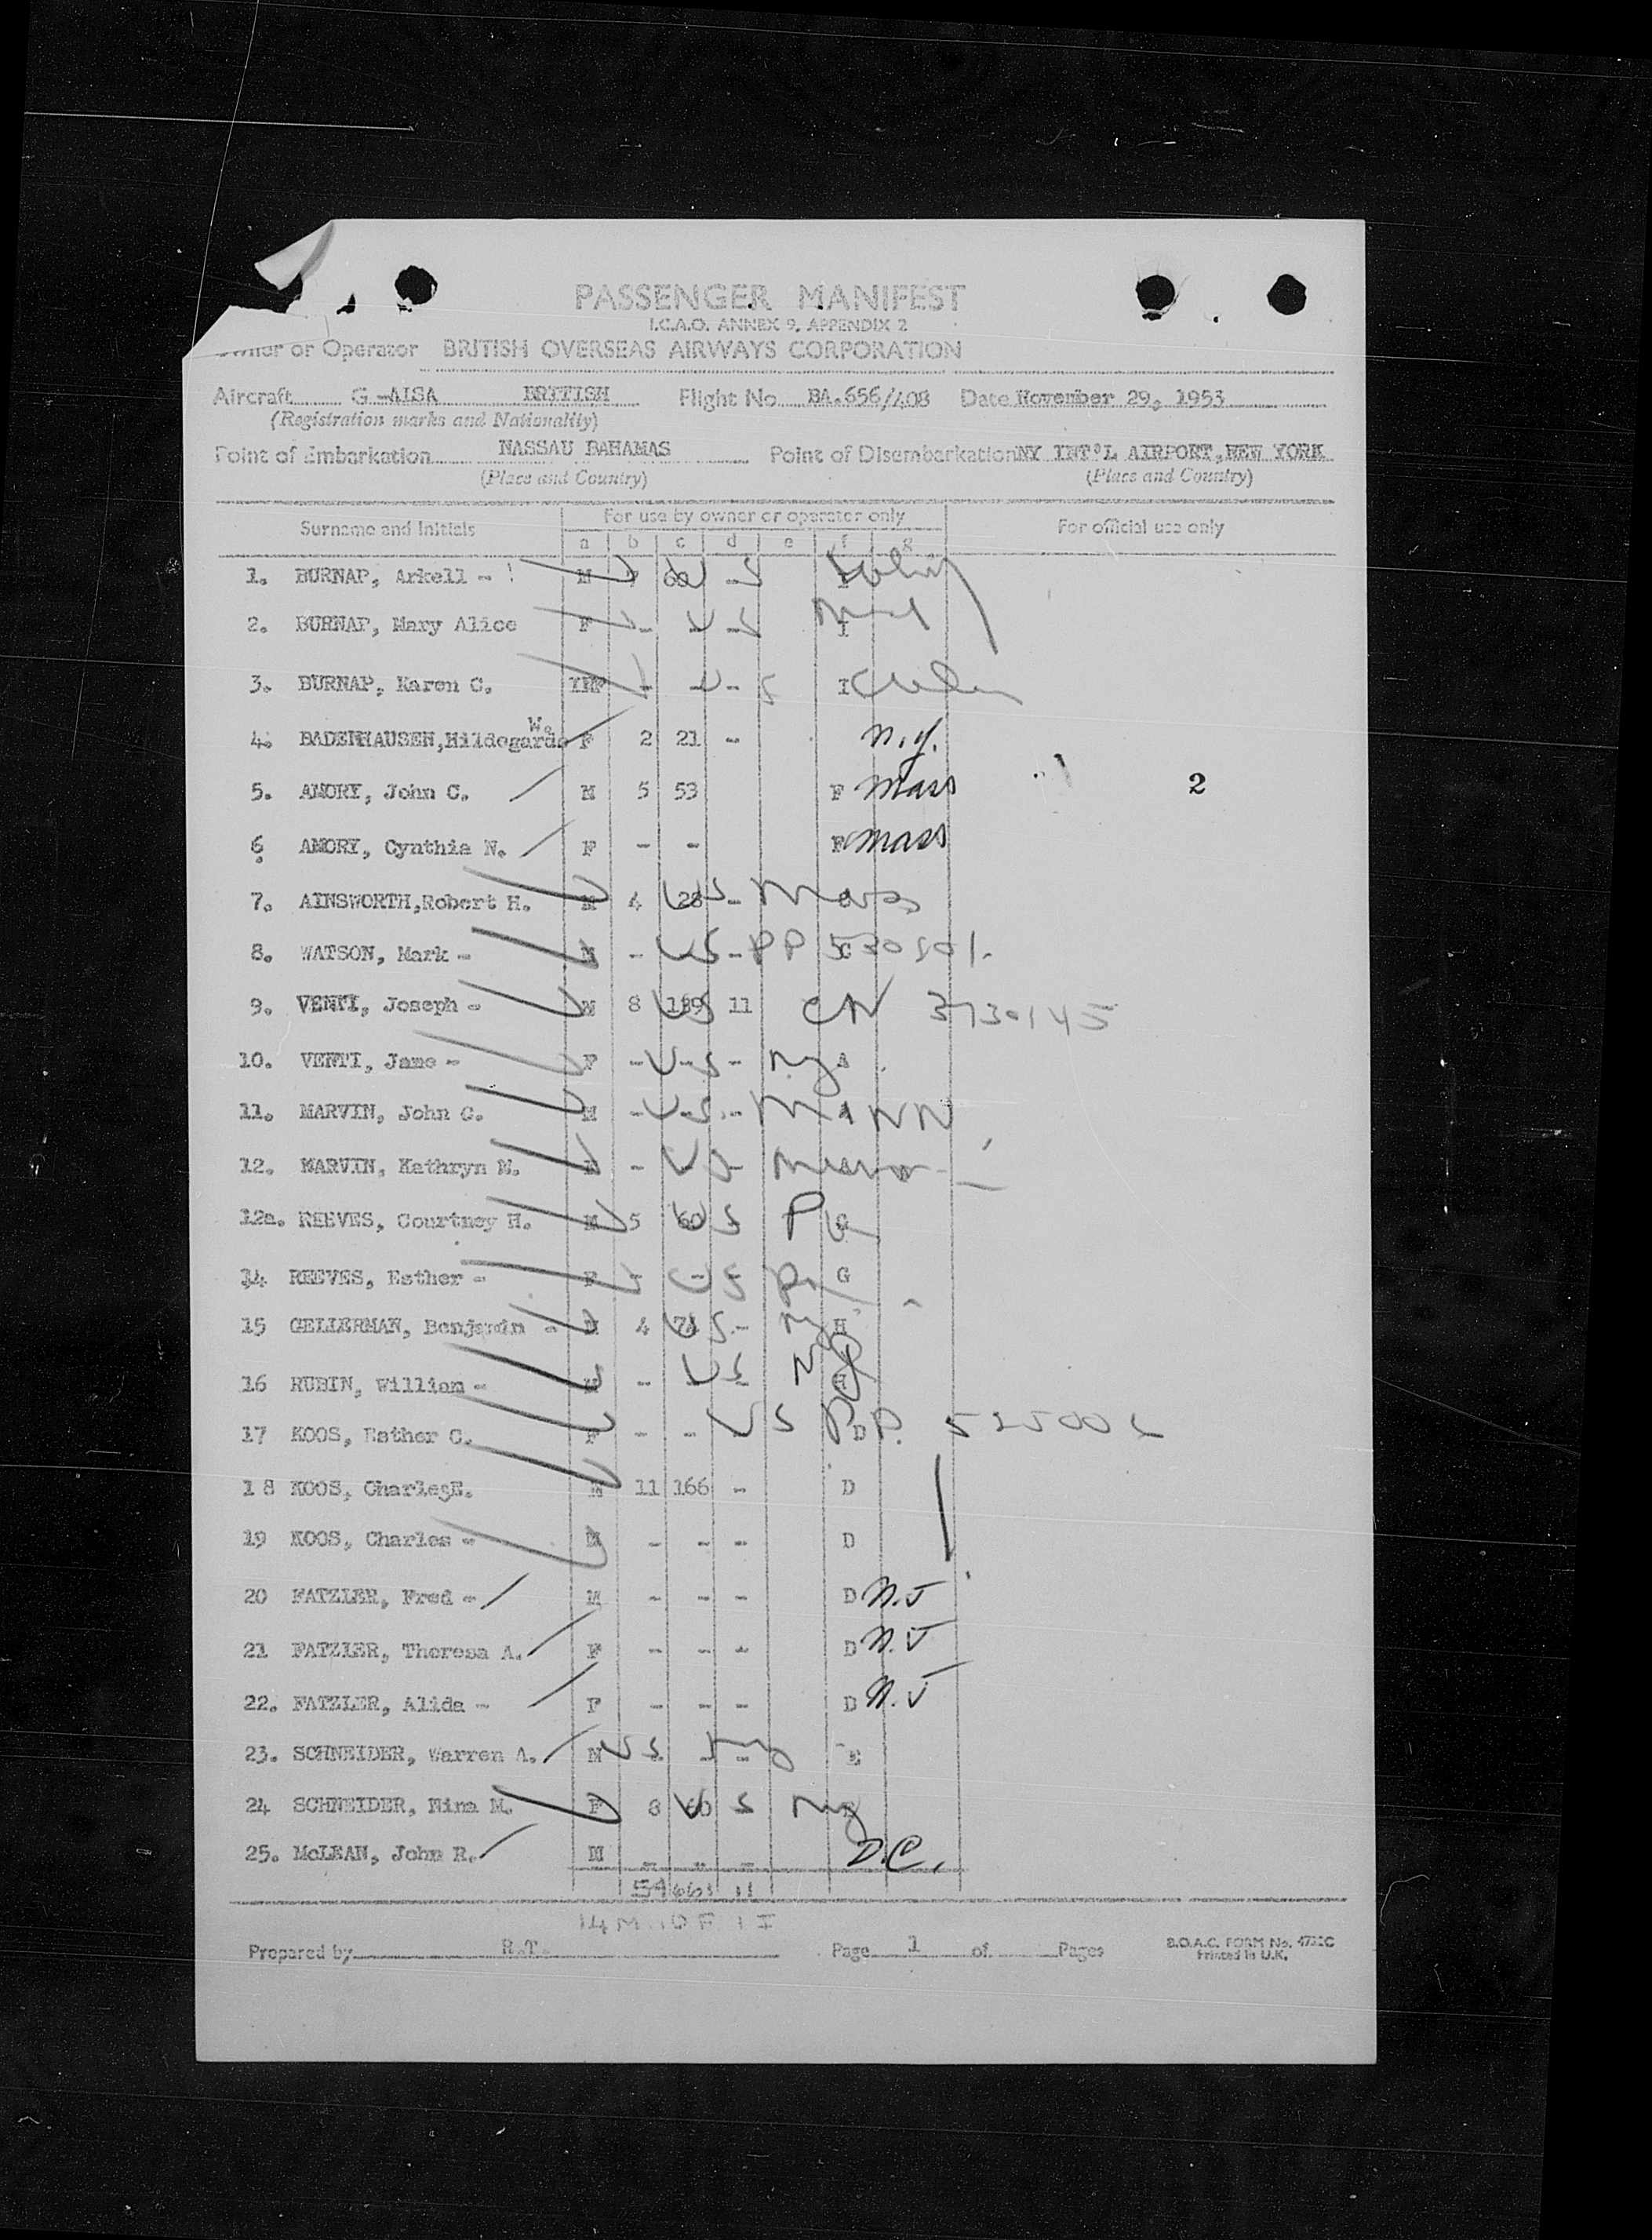 PASSENGER MANIFEST
I.C.A.O. ANNEX 9, APPENDIX 2
Owner or Operator BRITISH OVERSEAS AIRWAYS CORPORATION
Aircraft G-ALSA BRITISH Flight No BA.656/408 Date November 29, 1953
(Registration marks and Nationality)
Point of Embarkation NASSAU BAHAMAS Point of Disembarkation NY INT'L AIRPORT, NEW YORK
(Place and Country) (Place and Country)
Surname and Initials For use by owner or operator only For official use only
a b c d e f g
1. BURNAP, Arkell - M 7 60 - S
2. BURNAP, Mary Alice F - US - I
3. BURNAP, Karen C. INF - U - S I
W.
4. BADENHAUSEN, Hildegarde F 2 21 - N.Y.
5. AMORY, John C. M 5 53 F Mass 2
6. AMORY, Cynthia N. F - - F Mass
7. AINSWORTH, Robert H. M 4 28 US - Mass
8. WATSON, Mark - M - US - PP 530501
9. VENTI, Joseph - M 8 189 US 11 CN 3730145
10. VENTI, Jane - F - US - NY A
11. MARVIN, John C. M - US - MANN
12. MARVIN, Kathryn M. F - US -
12a. REEVES, Courtney H. M 5 60 US P G
34 REEVES, Esther - F - US - G
15 GELLERMAN, Benjamin - M 4 71 US - NY H
16 RUBIN, William - M - US - NY H
17 KOOS, Esther C. F - - US P.P. D 525006
18 KOOS, Charles E. M 11 166 - D
19 KOOS, Charles - M - - - D
20 FATZLER, Fred - M - - - D N.J
21 FATZLER, Theresa A. F - - - D N.J
22. FATZLER, Alida - F - - - D N.J
23. SCHNEIDER, Warren A. M US - - NY E
24 SCHNEIDER, Nina M. F 8 60 US NY
25. McLEAN, John R. M - - - D.C.
59 663 11
14 M 10 F 1 I
Prepared by R.T. Page 1 of Pages B.O.A.C. FORM No.
Printed in U.K.